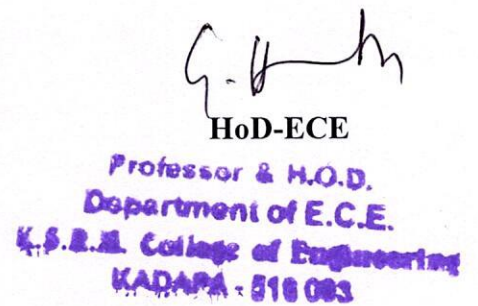 HoD-ECE
Professor & H.O.D.
Department of E.C.E.
K.S.R.M. College of Engineering
KADAPA - 516 003